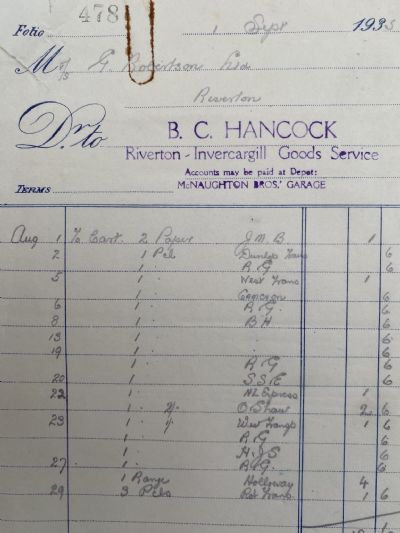 Folio 478
1 Sept 1933
M/s G Robertson Ltd
Riverton
Dr. to B. C. HANCOCK
Riverton - Invercargill Goods Service
Accounts may be paid at Depot:
TERMS McNAUGHTON BROS.' GARAGE
Aug 1 To Cart. 2 Paper J.M.B 1
2 1 Pcl Dunlop Trans 6
1 " R.G 6
5 1 " West Trans 1
1 " Cameron 6
6 1 " R.G. 6
8 1 " B.H 6
13 1 " 6
19 1 " 6
1 " R.G 6
20 1 " S.S.E 6
22 1 " NZ Express 1
1 " O'Shaw 2 6
23 1 " West Trans 1 6
1 " R.G 6
1 " H.J.S 6
27 1 " R.G. 6
1 Range Holloway 4
29 3 Pcls Trans 1 6